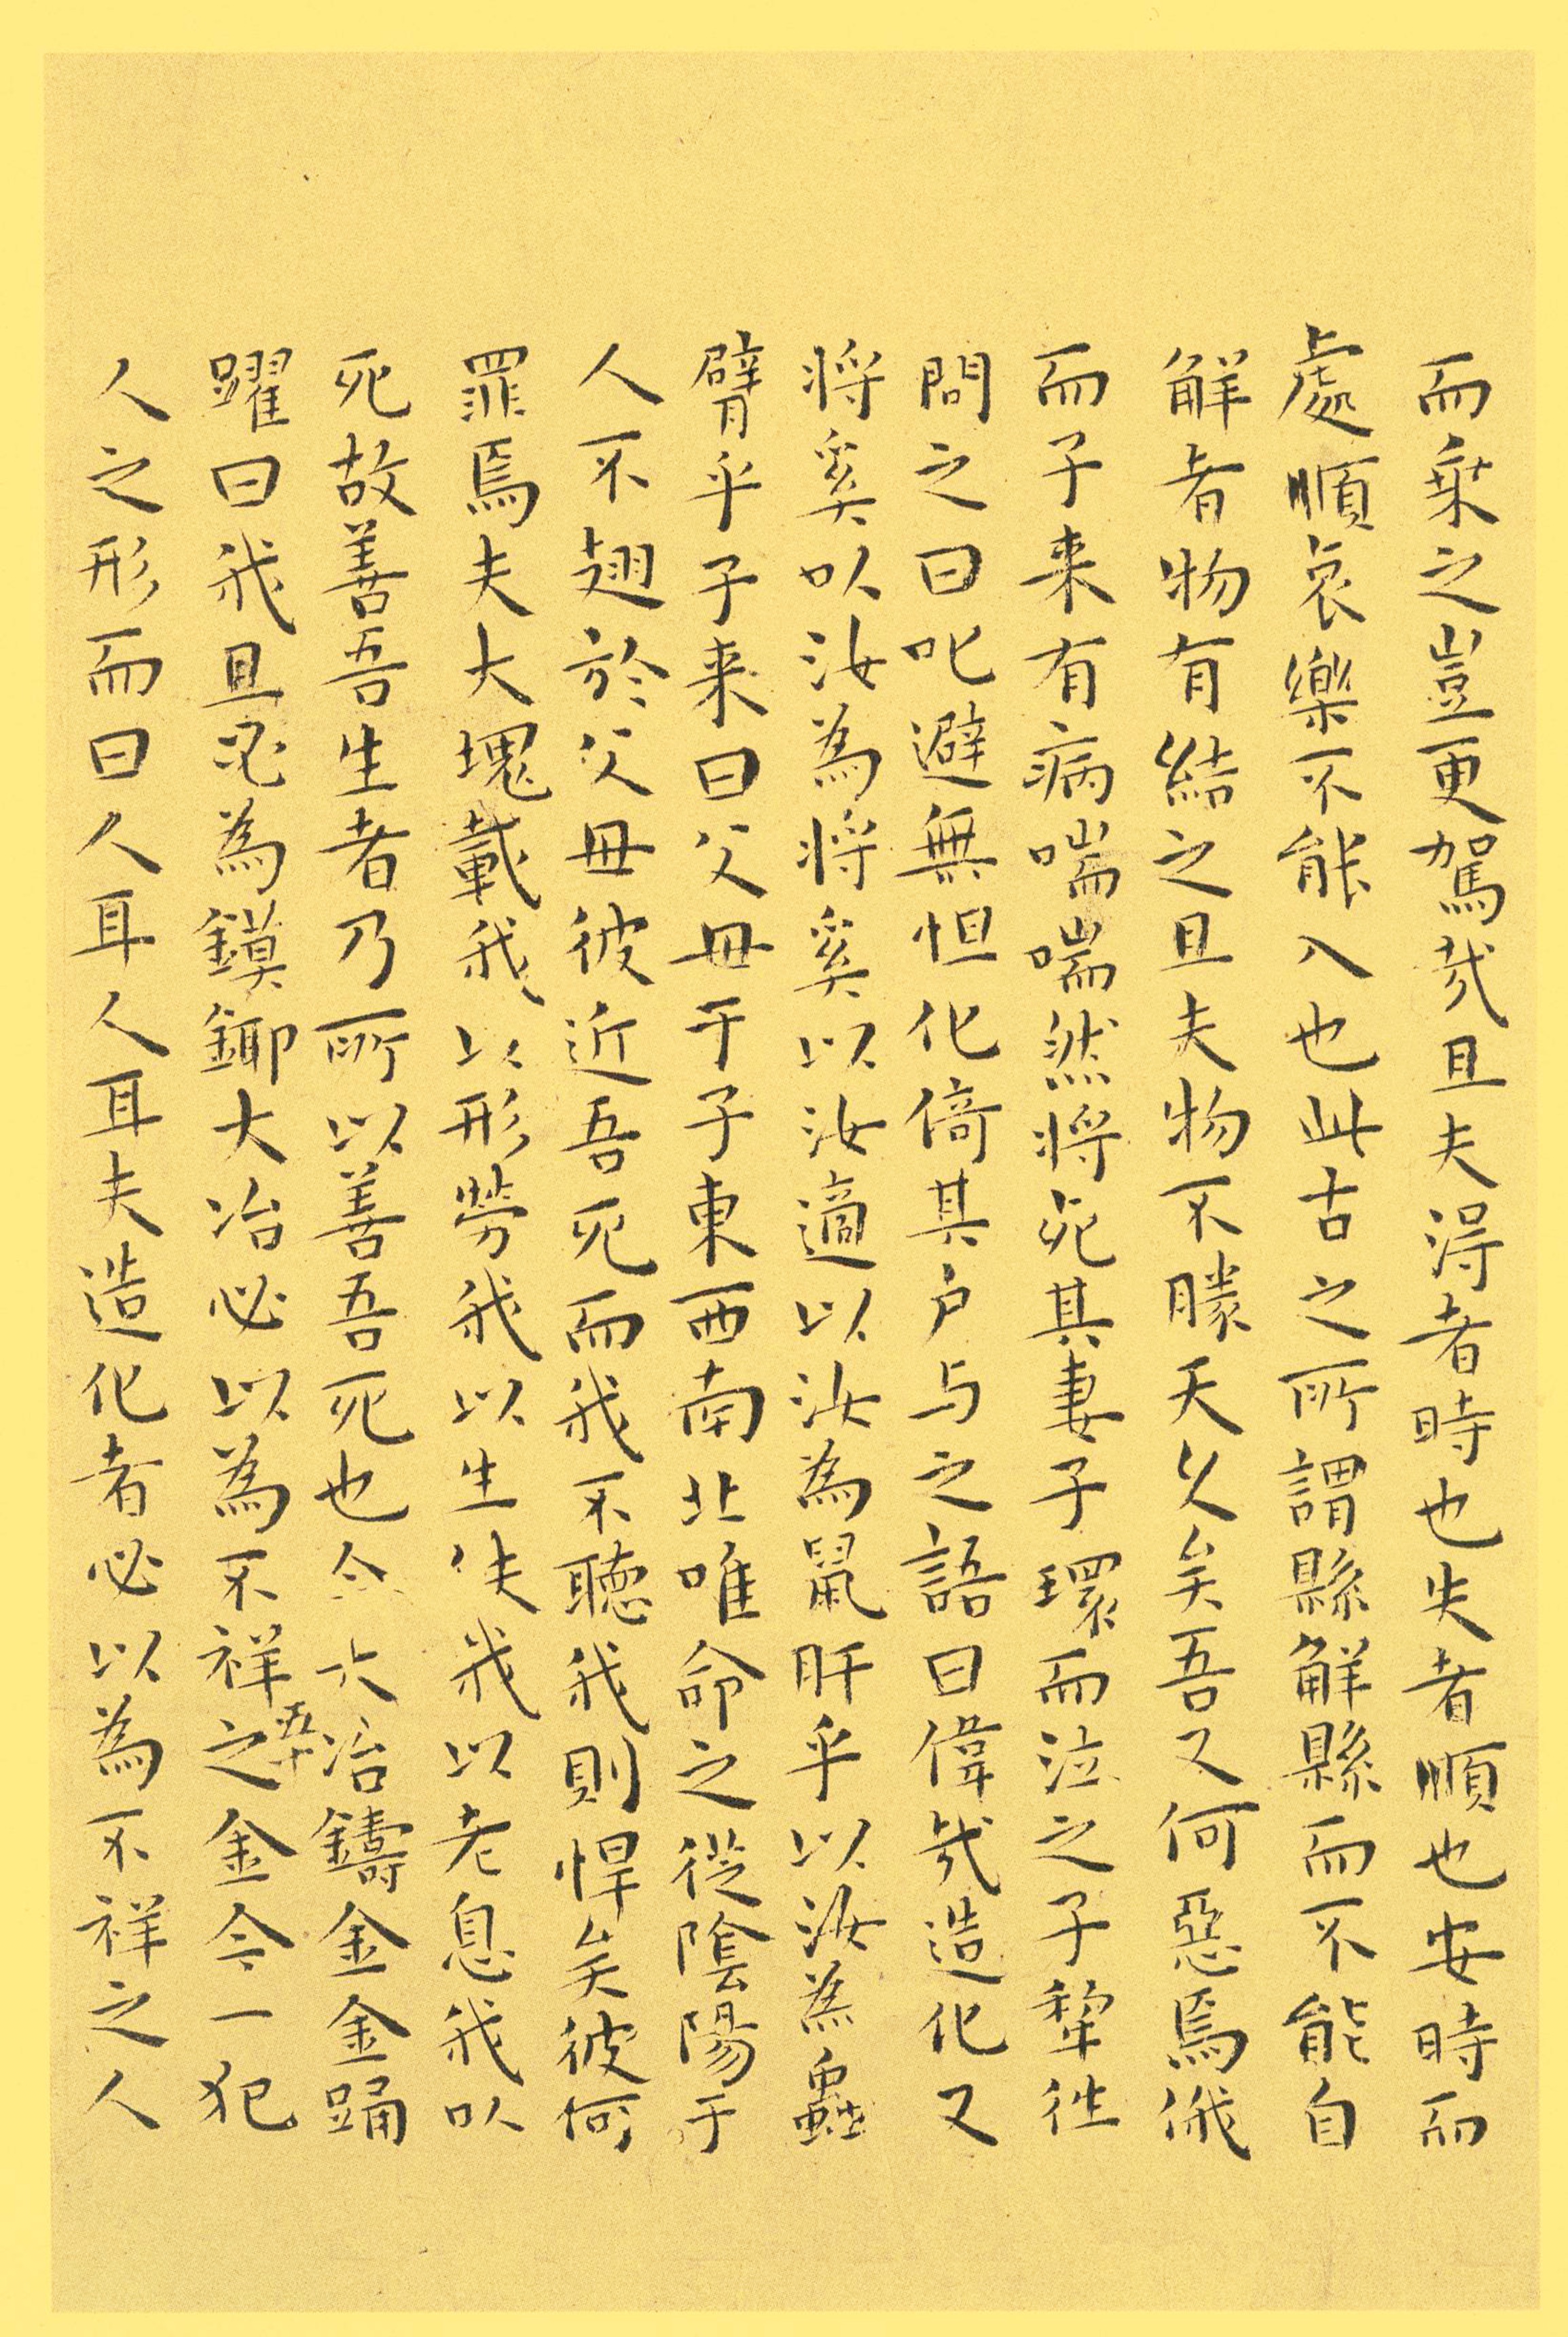 而乗之豈更駕哉且夫得者時也失者順也安時而
處順哀樂不能入也此古之所謂縣解縣而不能自
解者物有結之且夫物不勝天久矣吾又何惡焉俄
而子来有病喘喘然将死其妻子環而泣之子犂往
問之曰叱避無怛化倚其户与之語曰偉哉造化又
将奚以汝為将奚以汝適以汝為鼠肝乎以汝為蟲
臂乎子来曰父母于子東西南北唯命之從陰陽于
人不翅於父母彼近吾死而我不聴我則悍矣彼何
罪焉夫大塊載我以形勞我以生佚我以老息我以
死故善吾生者乃所以善吾死也今大冶鑄金金踊
躍曰我且必為鏌鋣大冶必以為不祥之金今一犯
人之形而曰人耳人耳夫造化者必以為不祥之人